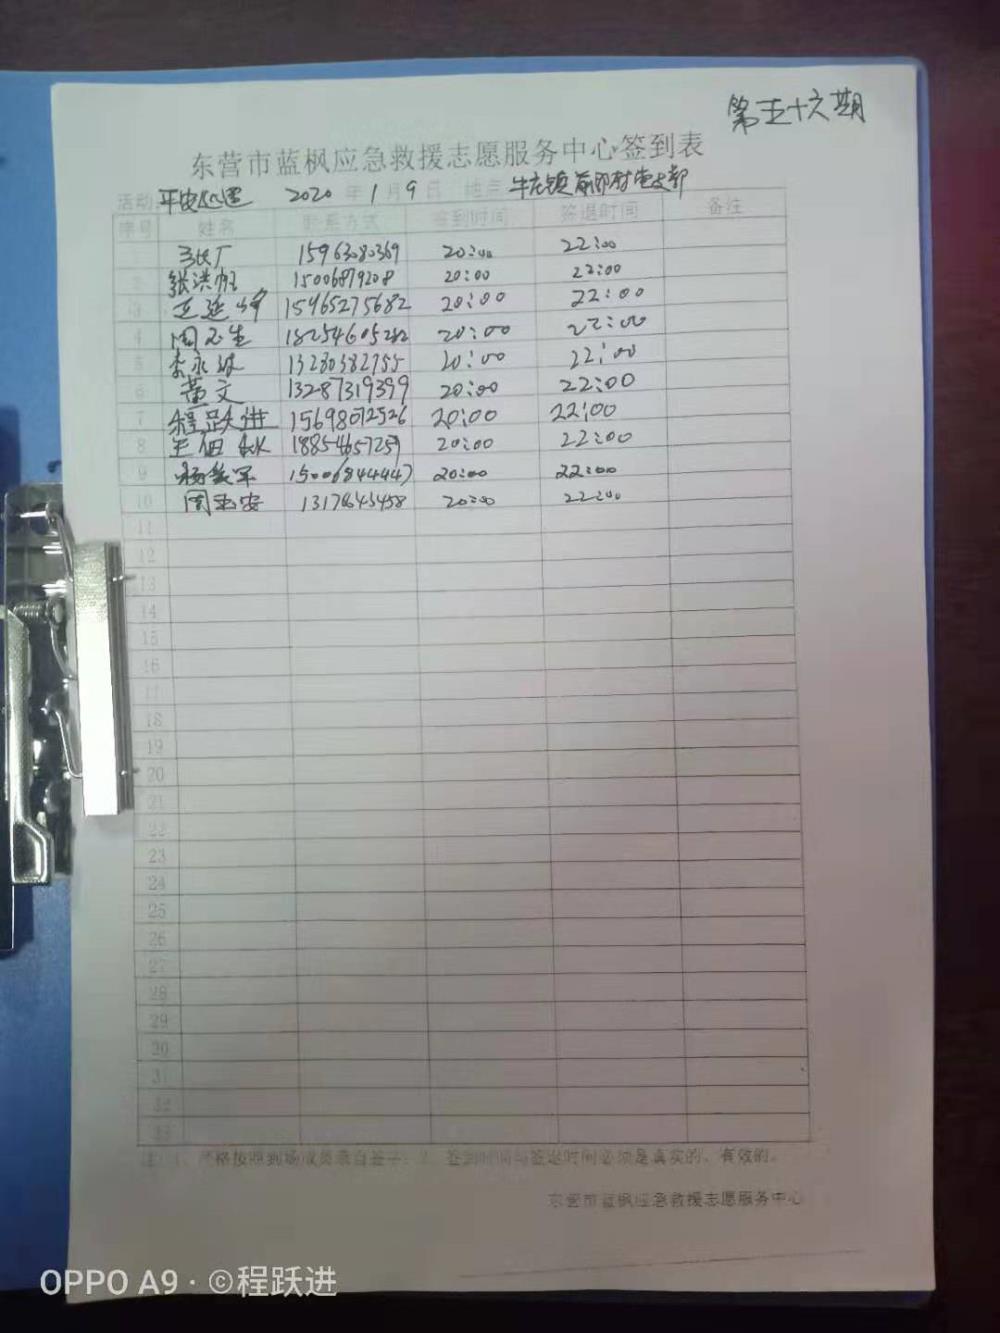 第五十六期
东营市蓝枫应急救援志愿服务中心签到表
活动: 平安夜巡 2020 年 1 月 9 日 地点 牛庄镇 村党支部
序号 姓名 联系方式 签到时间 签退时间 备注
15963080369 20:00 22:00
2 张洪帆 15006879208 20:00 22:00
3 15965275682 20:00 22:00
4 周玉生 20:00 22:00
5 李永波 13280382755 20:00 22:00
6 董文 13287319399 20:00 22:00
7 程跃进 15698072526 20:00 22:00
8 王伯 18854657259 20:00 22:00
9 杨 军 15006844447 20:00 22:00
10 周玉安 20:00 22:00
11
12
13
14
15
16
17
18
19
20
21
22
23
24
25
26
27
28
29
30
31
32
33
注:1、严格按照到场成员亲自签字;2、签到时间与签退时间必须是真实的、有效的。
东营市蓝枫应急救援志愿服务中心
OPPO A9 · ©程跃进